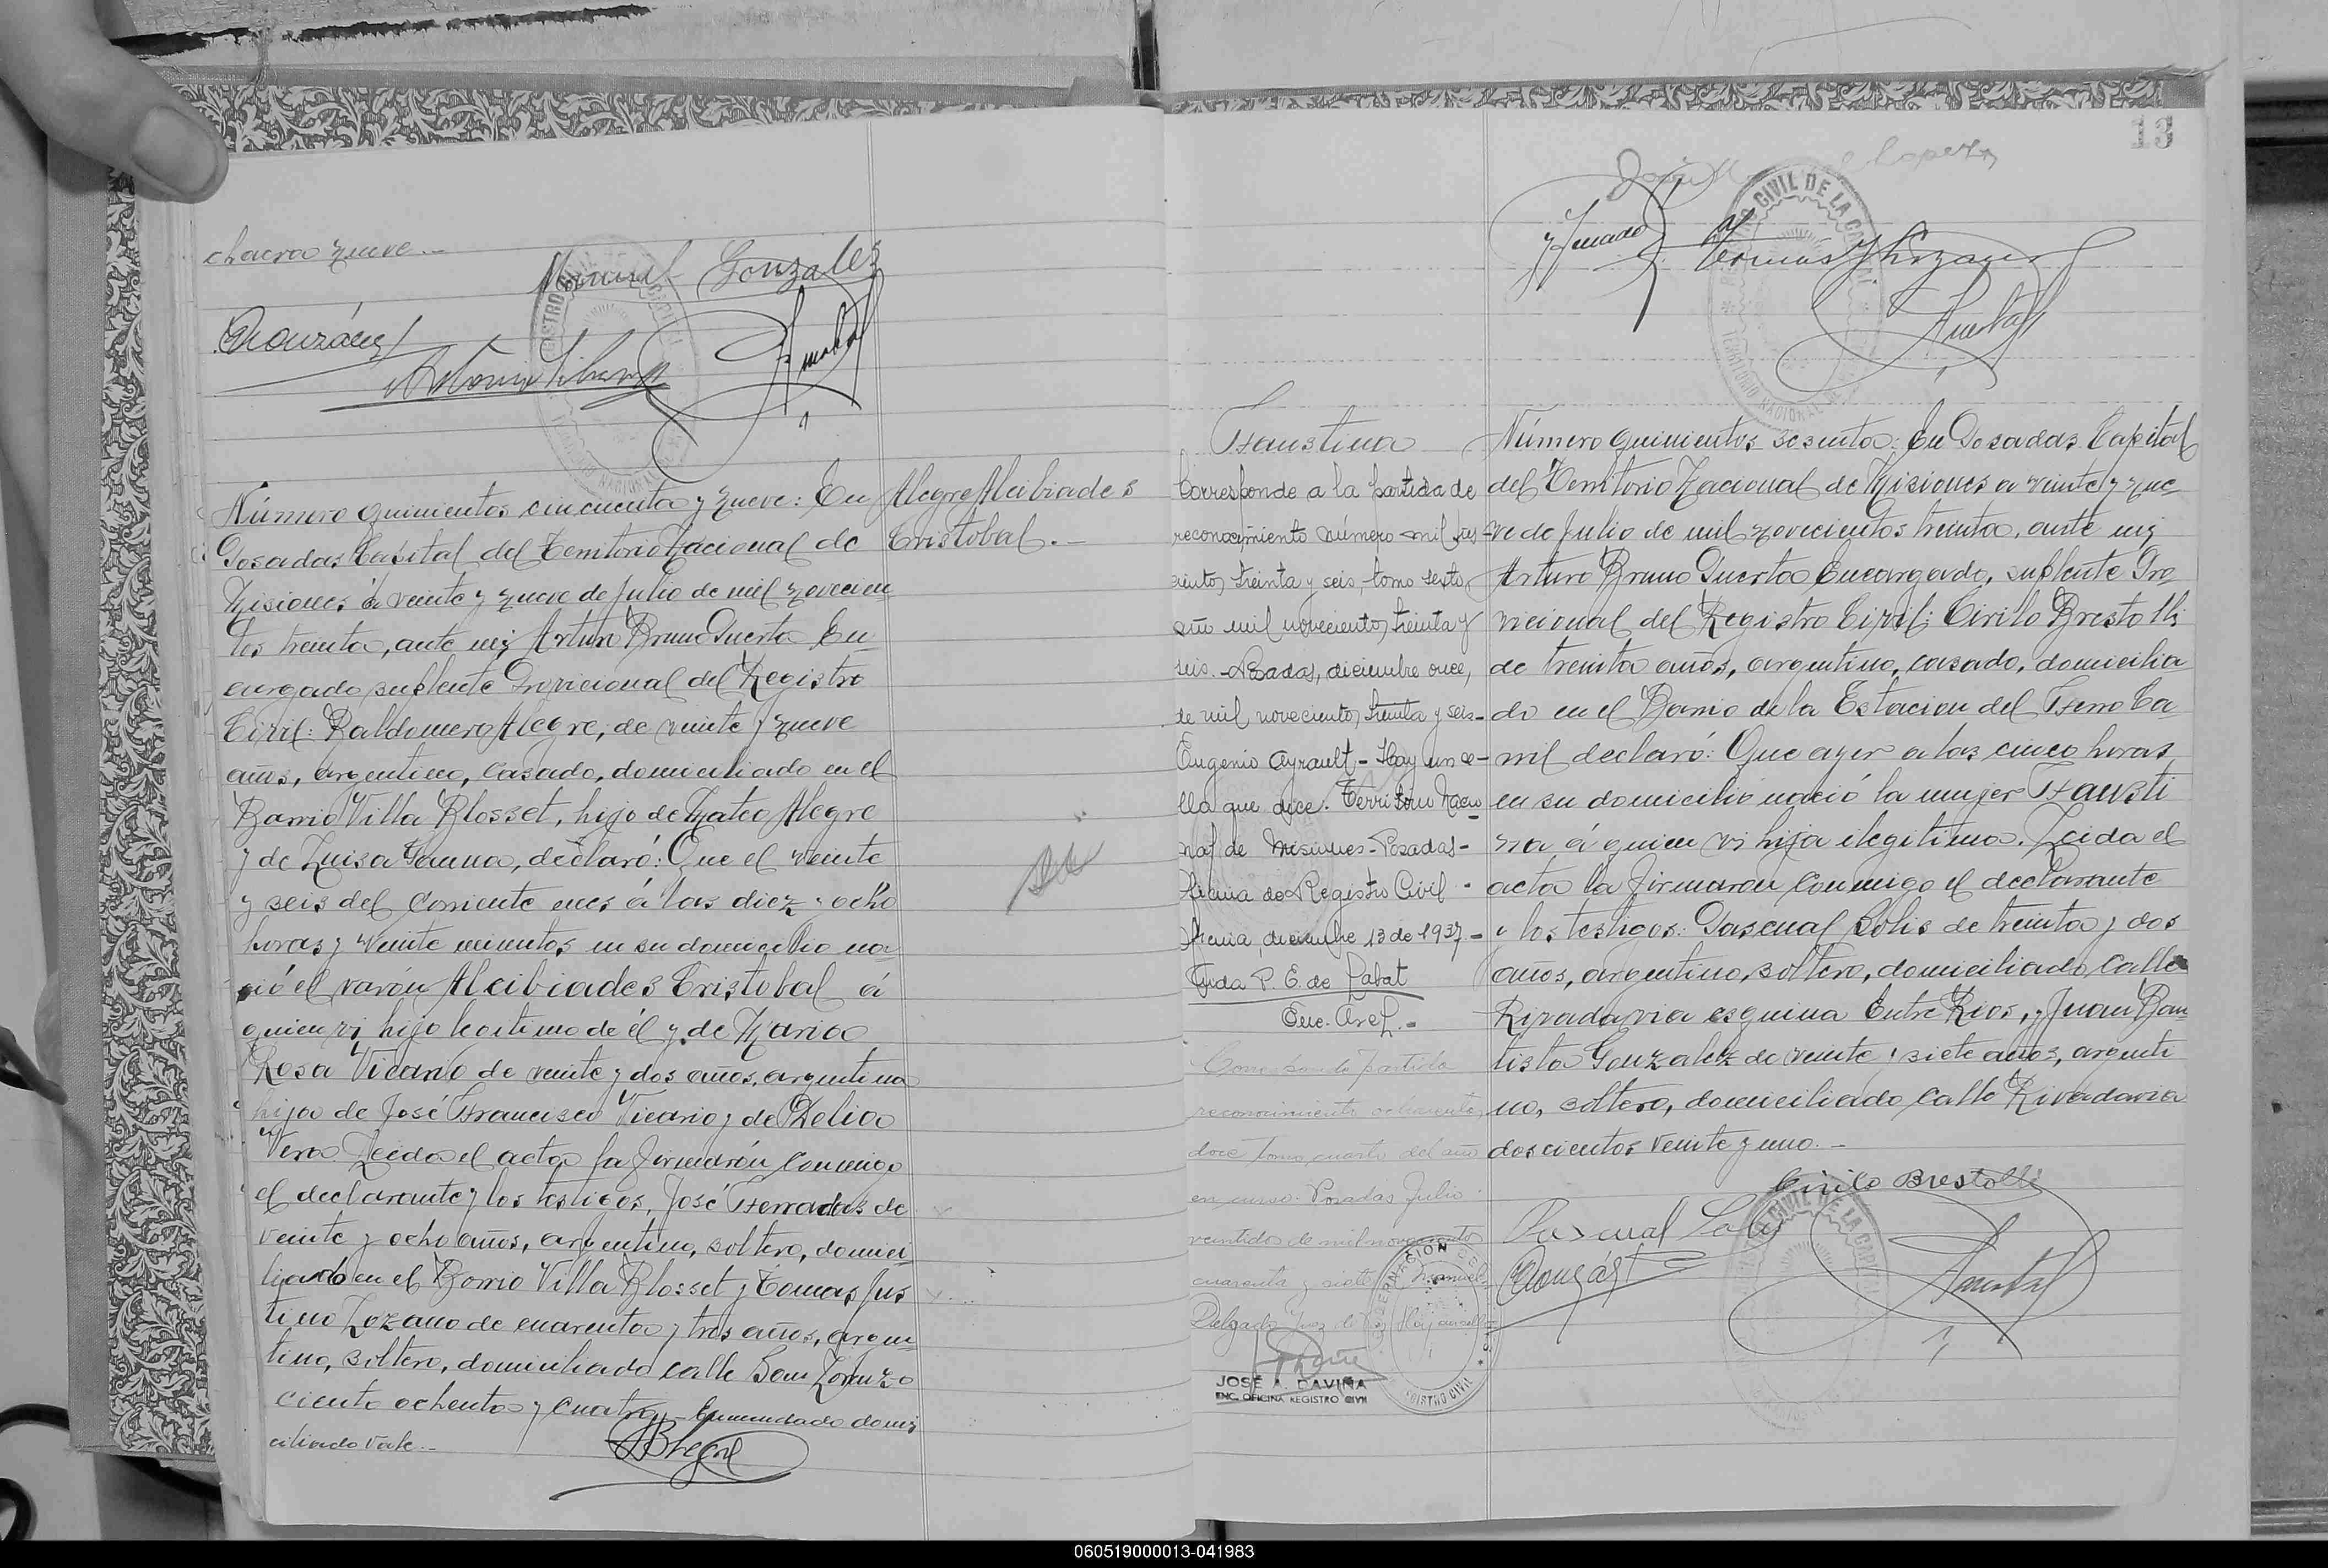 chacra nueve.-
Manuel Gonzalez
Número quinientos cincuenta y nueve: En
Posadas Capital del Territorio Nacional de
Misiones á veinte y nueve de Julio de mil novecien
tos treinta, ante mi Arturo Bruno Puerta En
cargado suplente Provicional del Registro
Civil: Baldomero Alegre, de veinte y nueve
años, argentino, casado, domiciliado en el
Barrio Villa Blosset, hijo de Mateo Alegre
y de Luisa Gauna, declaró: Que el veinte
y seis del corriente mes á las diez y ocho
horas y veinte minutos en su domicilio na
ció el varón Alcibiades Cristobal á
quien vi, hijo legitimo de él y de Maria
Rosa Vicario de veinte y dos años, argentina
hija de José Francisco Vicario y de Delia
Vera. Leida el acta la firmarón conmigo
el declarante y los testigos, José Ferradas de
veinte y ocho años, argentino, soltero, domici
liado en el Barrio Villa Blosset y Tomas Jus
tino Lozano de cuarenta y tres años, argen
tino, soltero, domiciliado calle San Lorenzo
ciento ochenta y cuatro,- Enmendado domi
ciliado vale.-
Alegre Alcibiades
Cristobal.-
13
Faustina
Corresponde a la partida de
reconocimiento número mil tres
ciento, treinta y seis, tomo sexto,
año mil novecientos, treinta y
seis.- Posadas, diciembre once,
de mil novecientos, treinta y seis-
Eugenio Ayrault - Hay un se-
llo que dice. Territorio Nacio
nal de Misiones - Posadas -
Oficina de Registro Civil -
diciembre 13 de 1937 -
P. E. de Labat
Enc. Arch.-
partida
reconocimiento ochocientos
doce tomo cuarto del año
en curso. Posadas Julio
veintidos de mil novecientos
cuarenta y siete Manuel
Delgado Juez de Paz Hay un sello
JOSÉ A. DAVIÑA
ENC. OFICINA REGISTRO CIVIL
Número quinientos sesenta: En Posadas Capital
del Territorio Nacional de Misiones a veinte y nue
ve de Julio de mil novecientos treinta, ante mi
Arturo Bruno Puerta Encargado, suplente Pro
vicional del Registro Civil: Cirilo Brestolli
de treinta años, argentino, casado, domicilia
do en el Barrio de la Estacion del Ferro Ca
rril declaró: Que ayer a las cinco horas
en su domicilio nació la mujer Fausti
na á quien vi hija ilegitima. Leida el
acta la firmarón conmigo el declarante
y los testigos: Pascual Solis de treinta y dos
años, argentino, soltero, domiciliado calle
Rivadavia esquina Entre Rios, y Juan Bau
tista Gonzalez de veinte y siete años, argenti
no, soltero, domiciliado calle Rivadavia
doscientos veinte y uno.-
Cirilo Brestolli
Pascual Solis
060519000013-041983